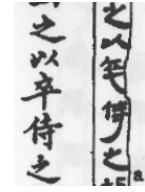 之以侍之
a
之以卒侍之